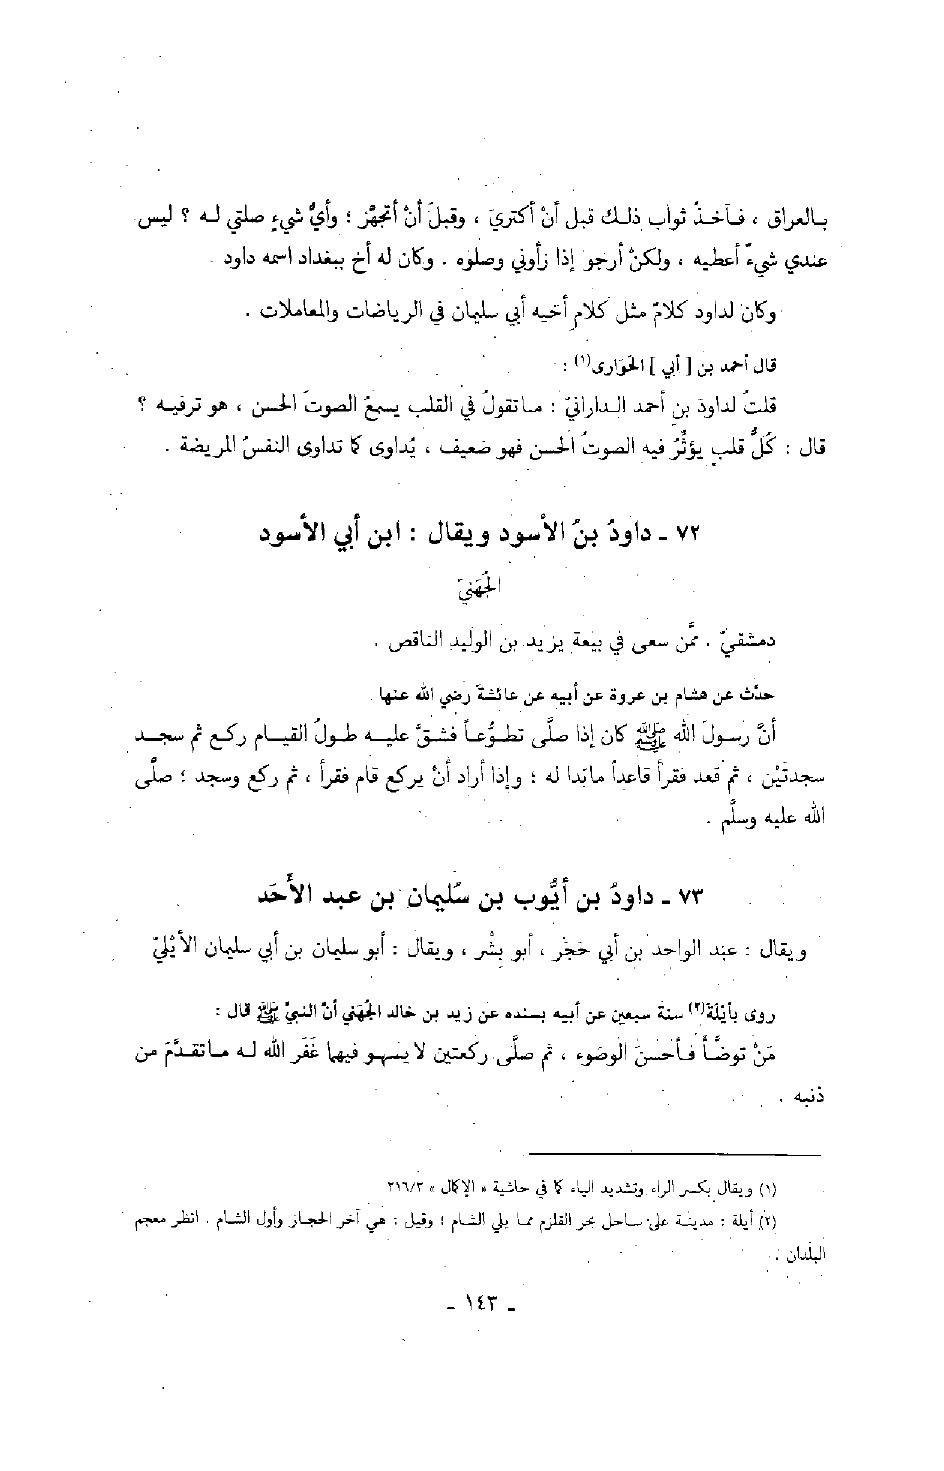 بالعراق ، فآخذُ ثواب ذلك قبل أنْ أكتريَ ، وقبلَ أنْ أتجهَّز ؛ وأيُّ شيءٍ صلتي له ؟ ليس
عندي شيءٌ أعطيه ، ولكنْ أرجو إذا رأوني وصلوه . وكان له أخ ببغداد اسمه داود .
وكان لداود كلامٌ مثل كلامِ أخيه أبي سليمان في الرياضات والمعاملات .
قال أحمد بن [ أبي ] الحَوَارى(١) :
قلتُ لداودَ بنِ أحمد الدارانيّ : ماتقولُ في القلب يسمعُ الصوتَ الحسن ، هو ترفيه ؟
قال : كلُّ قلبٍ يؤثِّرُ فيه الصوتُ الحسن فهو ضعيف ، يُداوى كما تداوى النفسُ المريضة .
٧٢ ـ داودُ بنُ الأسود ويقال : ابن أبي الأسود
الجُهَنيّ
دمشقيّ . ممَّن سعى في بيعة يزيد بن الوليد الناقص .
حدَّث عن هشام بن عروة عن أبيه عن عائشةَ رضي الله عنها .
أنَّ رسولَ الله ﷺ كان إذا صلَّى تطوُّعاً فشقَّ عليه طولُ القيام ركع ثم سجد
سجدتَيْن ، ثم قعد فقرأ قاعداً مابَدا له ؛ وإذا أراد أنْ يركع قام فقرأ ، ثم ركع وسجد ؛ صلَّى
الله عليه وسلَّم .
٧٣ ـ داودُ بن أيُّوب بن سُليمان بن عبد الأَحَد
ويقال : عبْد الواحد بن أبي حَجَر ، أبو بِشْر ، ويقال : أبو سليمان بن أبي سليمان الأَيْليّ
روى بأيْلَة(٢) سنة سبعين عن أبيه بسنده عن زيد بن خالد الجُهَني أنَّ النبيَّ ﷺ قال :
مَنْ توضَّأ فأحسنَ الوضوء ، ثم صلَّى ركعتين لا يسهو فيهما غَفَر الله له ماتقدَّمَ من
ذنبه .
(١) ويقال بكسر الراء وتشديد الياء كما في حاشية « الإكمال » ٢١٦/٣
(٢) أيلة : مدينة على ساحل بحر القلزم مما يلي الشام ؛ وقيل : هي آخر الحجاز وأول الشام . انظر معجم
البلدان .
ـ ١٤٣ ـ